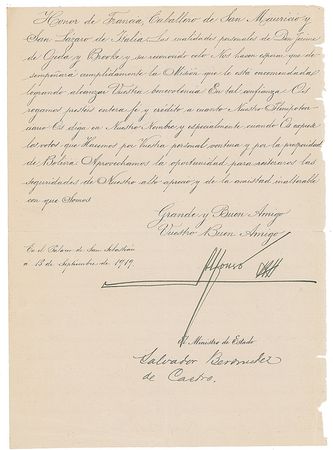 Honor de Francia, Caballero de San Mauricio y
San Lázaro de Italia. Las cualidades personales de Don Jaime
de Ojeda y Brooke y su reconocido celo Nos hacen esperar que de-
sempeñará cumplidamente la Misión que le está encomendada
logrando alcanzar Vuestra benevolencia. En tal confianza Os
rogamos prestéis entera fe y crédito a cuanto Nuestro Plenipoten-
ciario Os diga en Nuestro Nombre y especialmente cuando Os exprese
los votos que Hacemos por Vuestra personal ventura y por la prosperidad
de Bolivia. Aprovechamos la oportunidad para reiteraros las
seguridades de Nuestro alto aprecio y de la amistad inalterable
con que Somos
Grande y Buen Amigo
Vuestro Buen Amigo
En el Palacio de San Sebastián
a 13 de Septiembre de 1919.
Alfonso
El Ministro de Estado
Salvador Bermudez
de Castro.